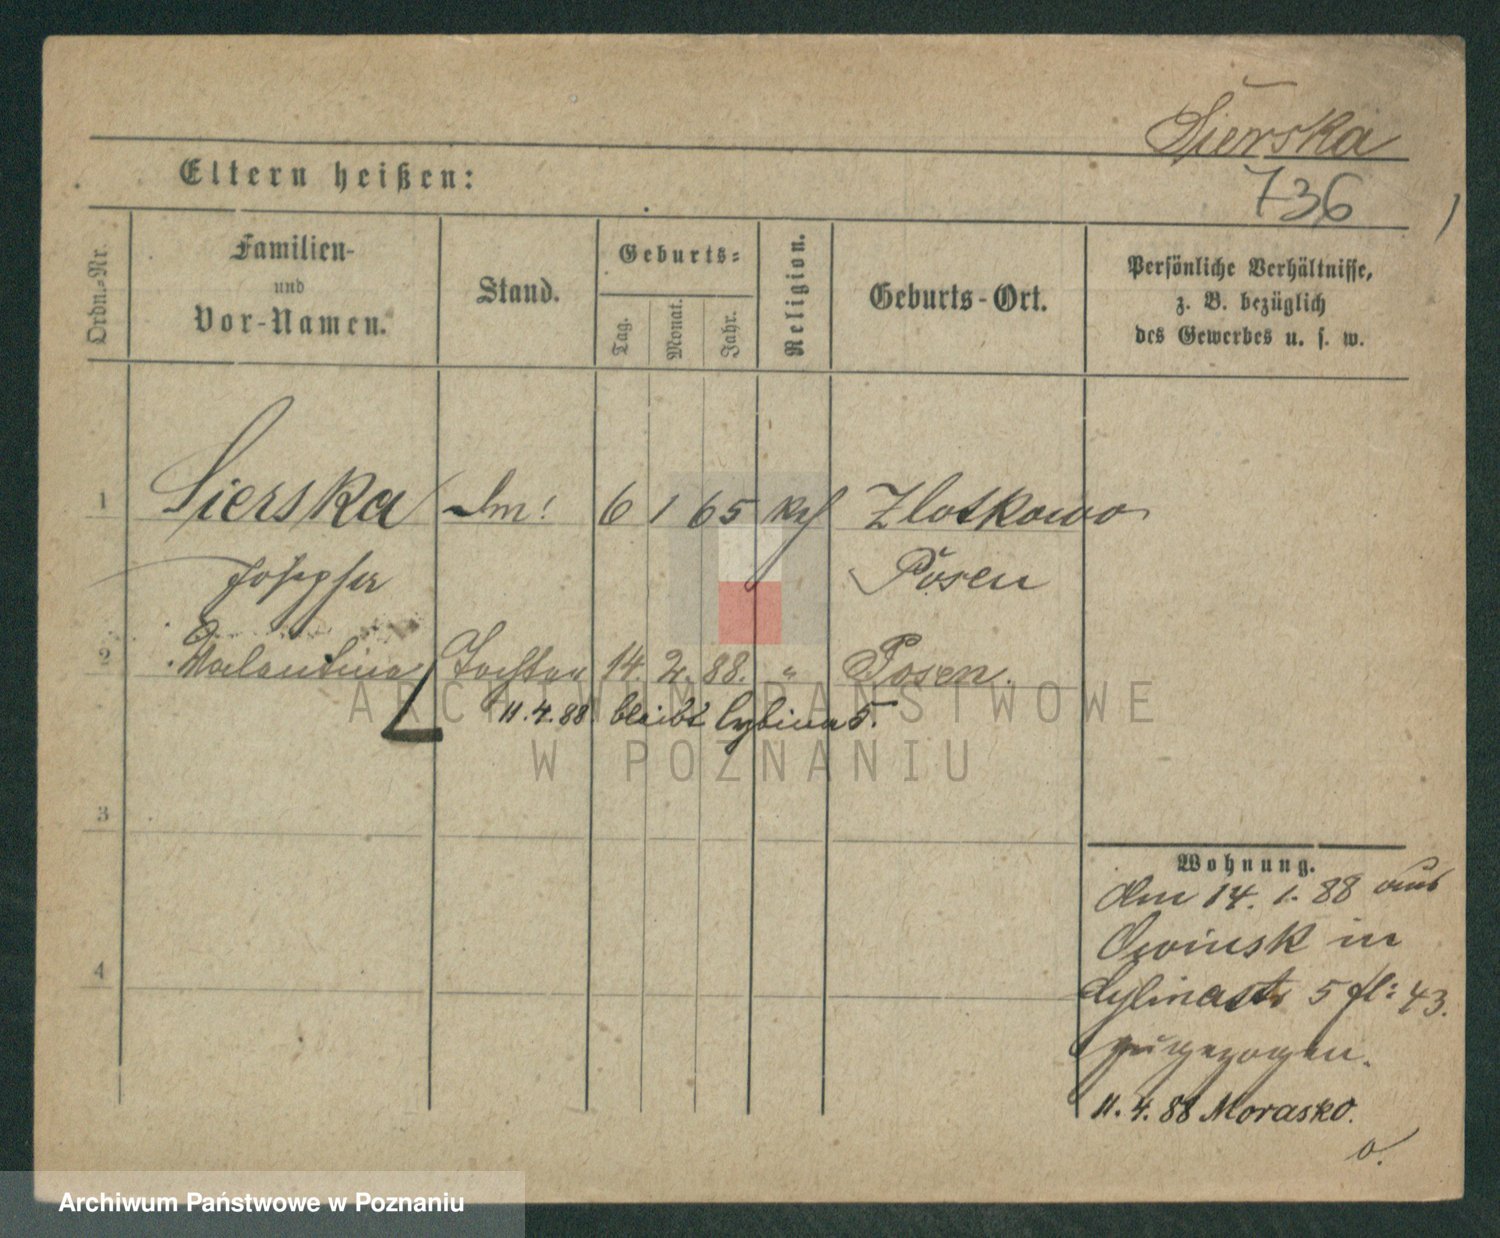 Sierska
736
Eltern heißen:
Ordn.-Nr.
Familien-
und
Vor-Namen.
Stand.
Geburts-
Tag.
Monat.
Jahr.
Religion.
Geburts-Ort.
Persönliche Verhältnisse,
z. B. bezüglich
des Gewerbes u. s. w.
1 Sierska 6 1 65 kath Zlotkowo
Josepha Posen
2 Valentina Tochter 14. 2. 88. " Posen.
11.4.88 bleibt Cybina 5.
ARCHIWUM PAŃSTWOWE
W POZNANIU
3
4
Wohnung.
Am 14. 1. 88 aus
Owinsk in
Cybinastr 5 fl: 43.
zugezogen.
11. 4. 88 Morasko.
Archiwum Państwowe w Poznaniu